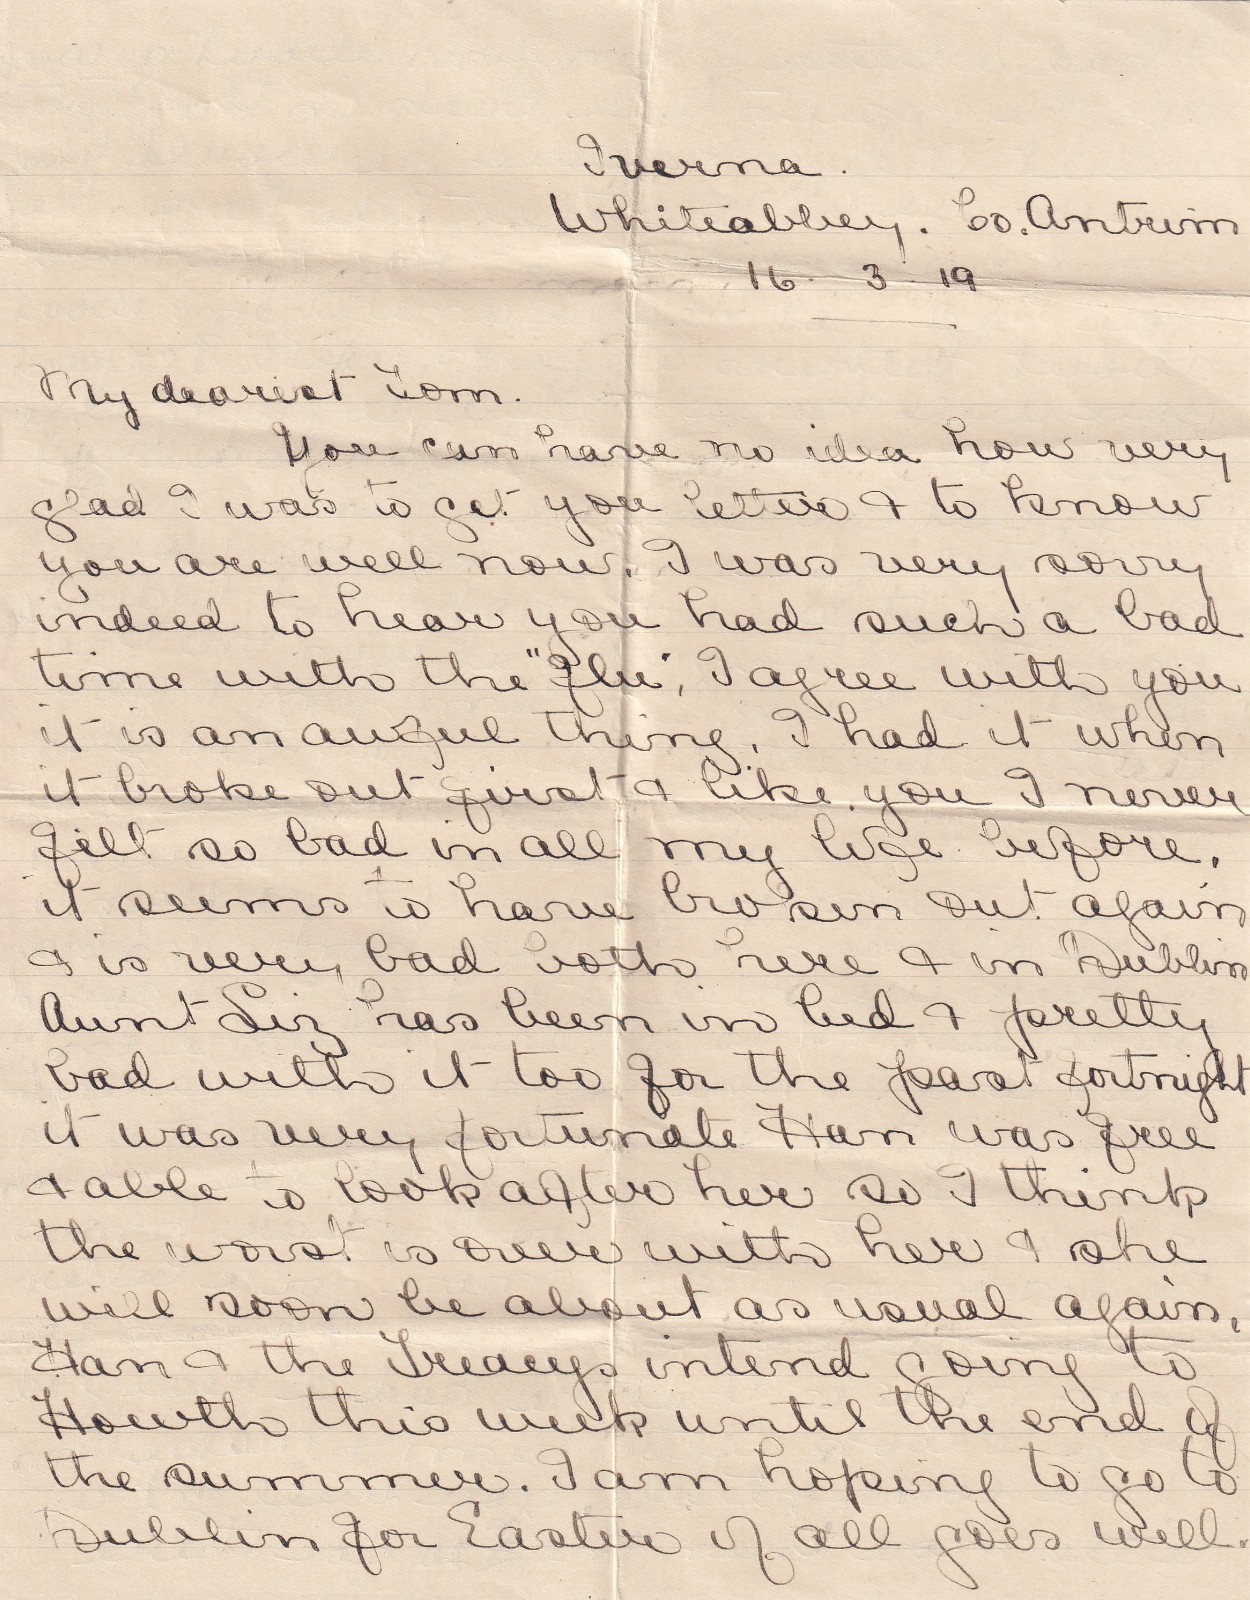 Iverna.
Whiteabbey. Co. Antrim
16 - 3 - 19
My dearest Tom.
You can have no idea how very
glad I was to get you letter & to know
you are well now. I was very sorry
indeed to hear you had such a bad
time with the "flu", I agree with you
it is an awful thing. I had it when
it broke out first & like you I never
felt so bad in all my life before.
it seems to have broken out again
& is very bad both here & in Dublin
Aunt Liz has been in bed & pretty
bad with it too for the past fortnight
it was very fortunate Han was free
& able to look after her so I think
the worst is over with her & she
will soon be about as usual again.
Han & the Treacys intend going to
Howth this week until the end of
the summer. I am hoping to go to
Dublin for Easter if all goes well.